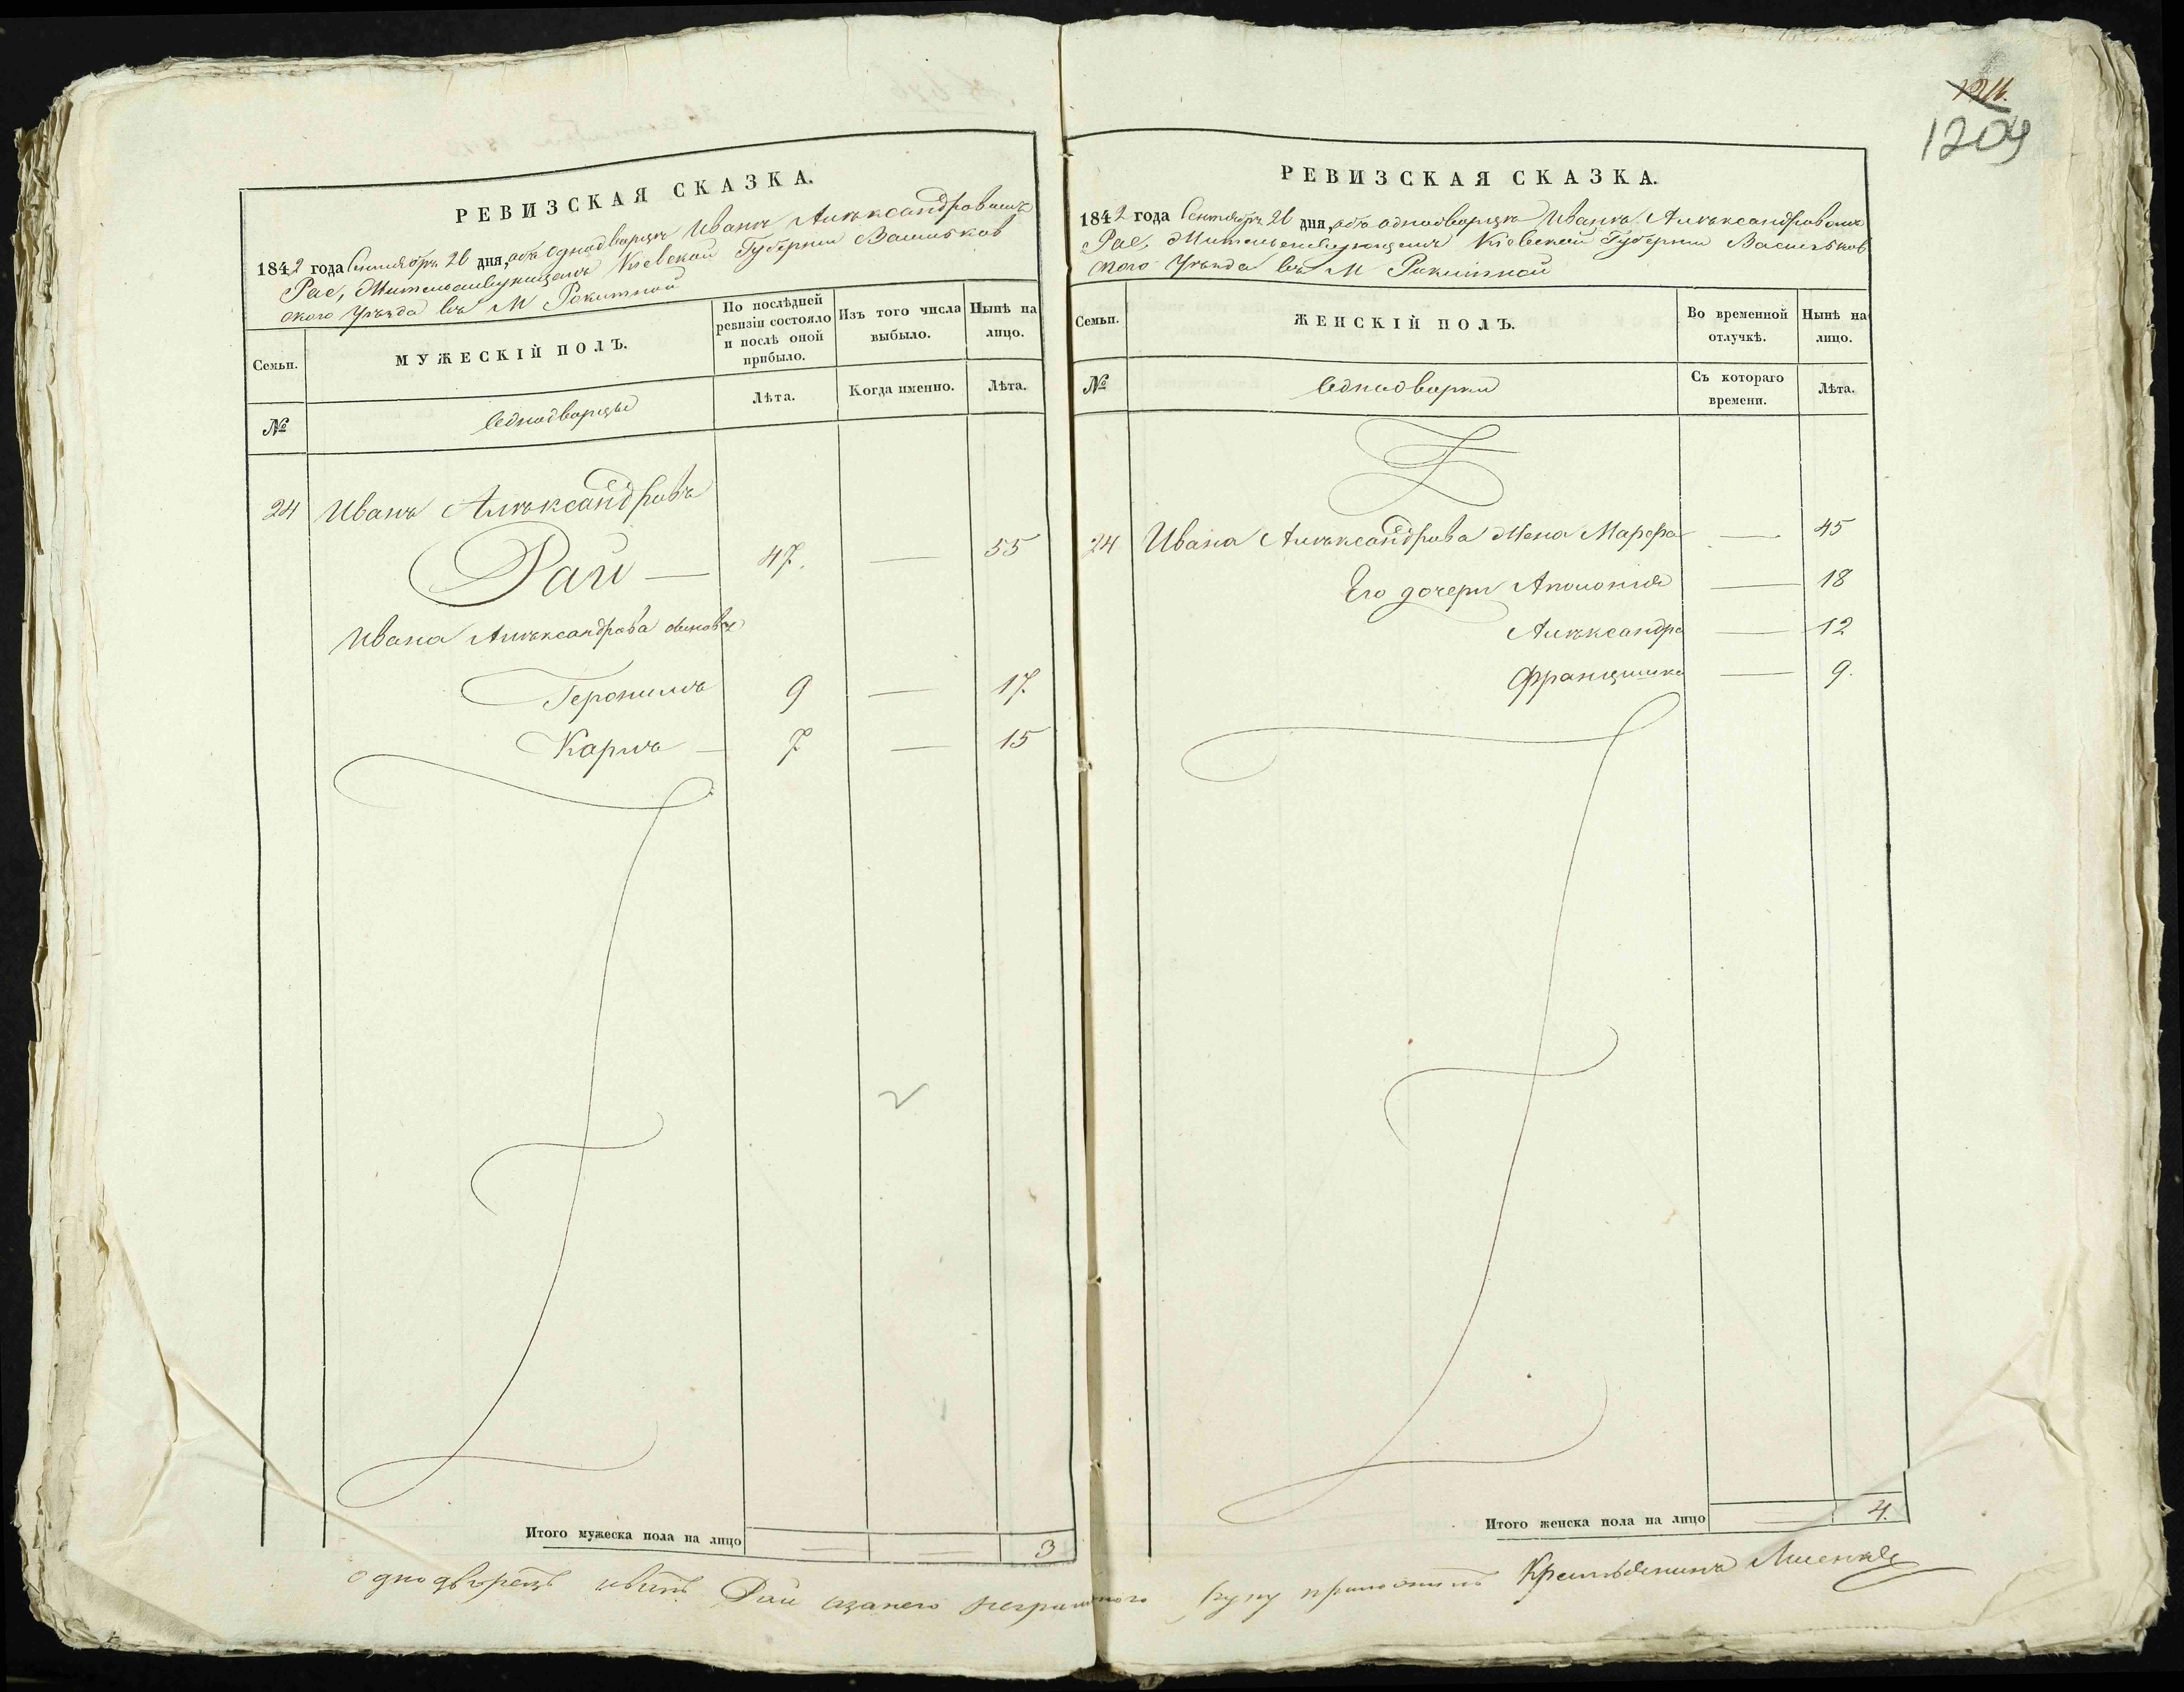 1211.
1209
РЕВИЗСКАЯ СКАЗКА.
1842 года Сентября 26 дня, объ Однодворцѣ Иванѣ Алѣксандровомъ
Рае, Жительствующемъ Кіевской Губерніи Васильков
ского Уѣзда въ М Рокитной
Семьи.
МУЖЕСКІЙ ПОЛЪ.
По послѣдней ревизіи состояло и послѣ оной прибыло.
Изъ того числа выбыло.
Нынѣ на лицо.
№
Однодворцы
Лѣта.
Когда именно.
Лѣта.
24 Иванъ Алѣксандровъ
Рай — 47. — 55
Ивана Алѣксандрова сыновья
Геронимъ 9 — 17.
Карлъ — 7 — 15
Итого мужеска пола на лицо — — 3
РЕВИЗСКАЯ СКАЗКА.
1842 года Сентября 26 дня, объ однодворцѣ Иванѣ Алѣксандровомъ
Рае, Жительствующемъ Кіевской Губерніи Васильков
ского Уѣзда въ М Рокитной
Семьи.
ЖЕНСКІЙ ПОЛЪ.
Во временной отлучкѣ.
Нынѣ на лицо.
№
Однодворки
Съ котораго времени.
Лѣта.
24 Ивана Алѣксандрова Жена Марфа — 45
Его дочери Аполонія — 18
Алѣксандра — 12
Францишка — 9.
Итого женска пола на лицо — 4.
однодворецъ иванъ Рай азанего неграмотного руку приложилъ Крестьянинъ